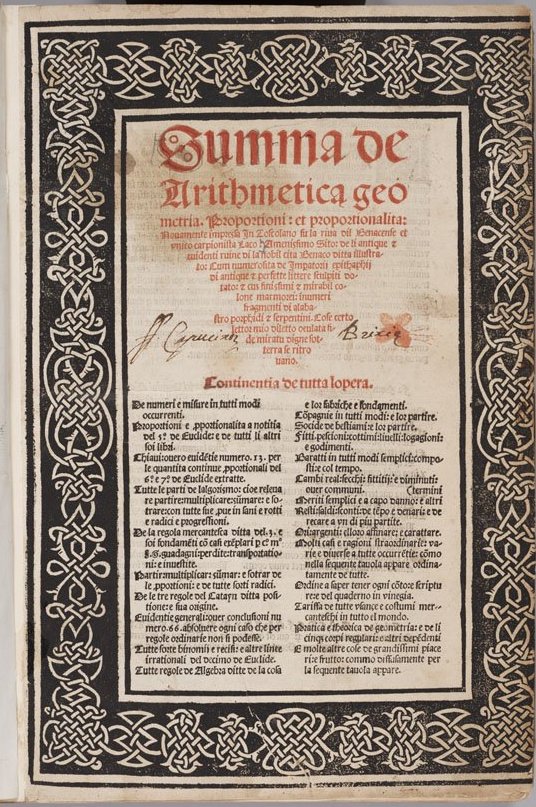 Summa de
Arithmetica geo
metria. Proportioni: et proportionalita:
Nouamente impressa In Toscolano su la riua dil Benacense et
vnico carpionista Laco: Amenissimo Sito: de li antique &
euidenti ruine di la nobil cita Benaco ditta illustra-
to: Cum numerosita de Imperatorij epithaphij
di antique & perfette littere sculpiti do-
tato: & cum finissimi & mirabil co-
lone marmorei: inumeri
fragmenti di alaba-
stro porphidi & serpentini. Cose certo
lettor mio diletto oculata fi-
de miratu digne sot-
terra se ritro
uano.
Continentia de tutta lopera.
De numeri e misure in tutti modi
occurrenti.
Proportioni e ꝓportionalita a notitia
del 5º de Euclide: e de tutti li altri
soi libri.
Chiaui: ouero euidētie numero. 13. per
le quantita continue ꝓportionali del
6º e 7º de Euclide extratte.
Tutte le parti de lalgorismo: cioe releua
re partire: multiplicare: summare: e so-
trare: con tutte sue ꝓue in sani e rotti
e radici e progressioni.
De la regola mercantesca ditta del. 3. e
soi fondamēti cō casi exēplari
guadagni: perdite: transportatio-
ni: e inuestite.
Partir: multiplicar: sūmar: e sotrar de
le ꝓportioni: e de tutte sorti radici.
De le tre regole del Catayn ditta posi-
tione: e sua origine.
Euidentie generali: ouer conclusioni nu
mero. 66. absoluere ogni caso che per
regole ordinarie non si podesse.
Tutte sorte binomii e recisi: e altre linee
irrationali del decimo de Euclide.
Tutte regole de Algebra ditte de la cosa
e lor fabriche e fondamenti.
Cōpagnie in tutti modi: e lor partire.
Socide de bestiami: e lor partire.
Fitti: pescioni: cottimi: liuelli: logagioni:
e godimenti.
Baratti in tutti modi semplici: compo-
sti: e col tempo.
Cambi reali: secchi: fittitij: e diminuti:
ouer communi. (termini
Meriti semplici e a capo danno: e altri
Resti: saldi: sconti: de tēpo e denari: e de
recare a vn di piu partite.
Ori: argenti: e lloro affinare: e carattare.
Molti casi e ragioni straordinarie: va-
rie e diuerse a tutte occurrētie: cōmo
nella sequente tauola appare ordina-
tamente de tutte.
Ordine a saper tener ogni cōto: e scriptu
re: e del quaderno in vinegia.
Tariffa de tutte vsance e costumi mer-
canteschi in tutto el mondo.
Pratica e theorica de geometria: e de li
cinqꝫ corpi regulari: e altri depēdenti
E molte altre cose de grandissimi piace
ri: e frutto: commo diffusamente per
la sequente tauola appare.